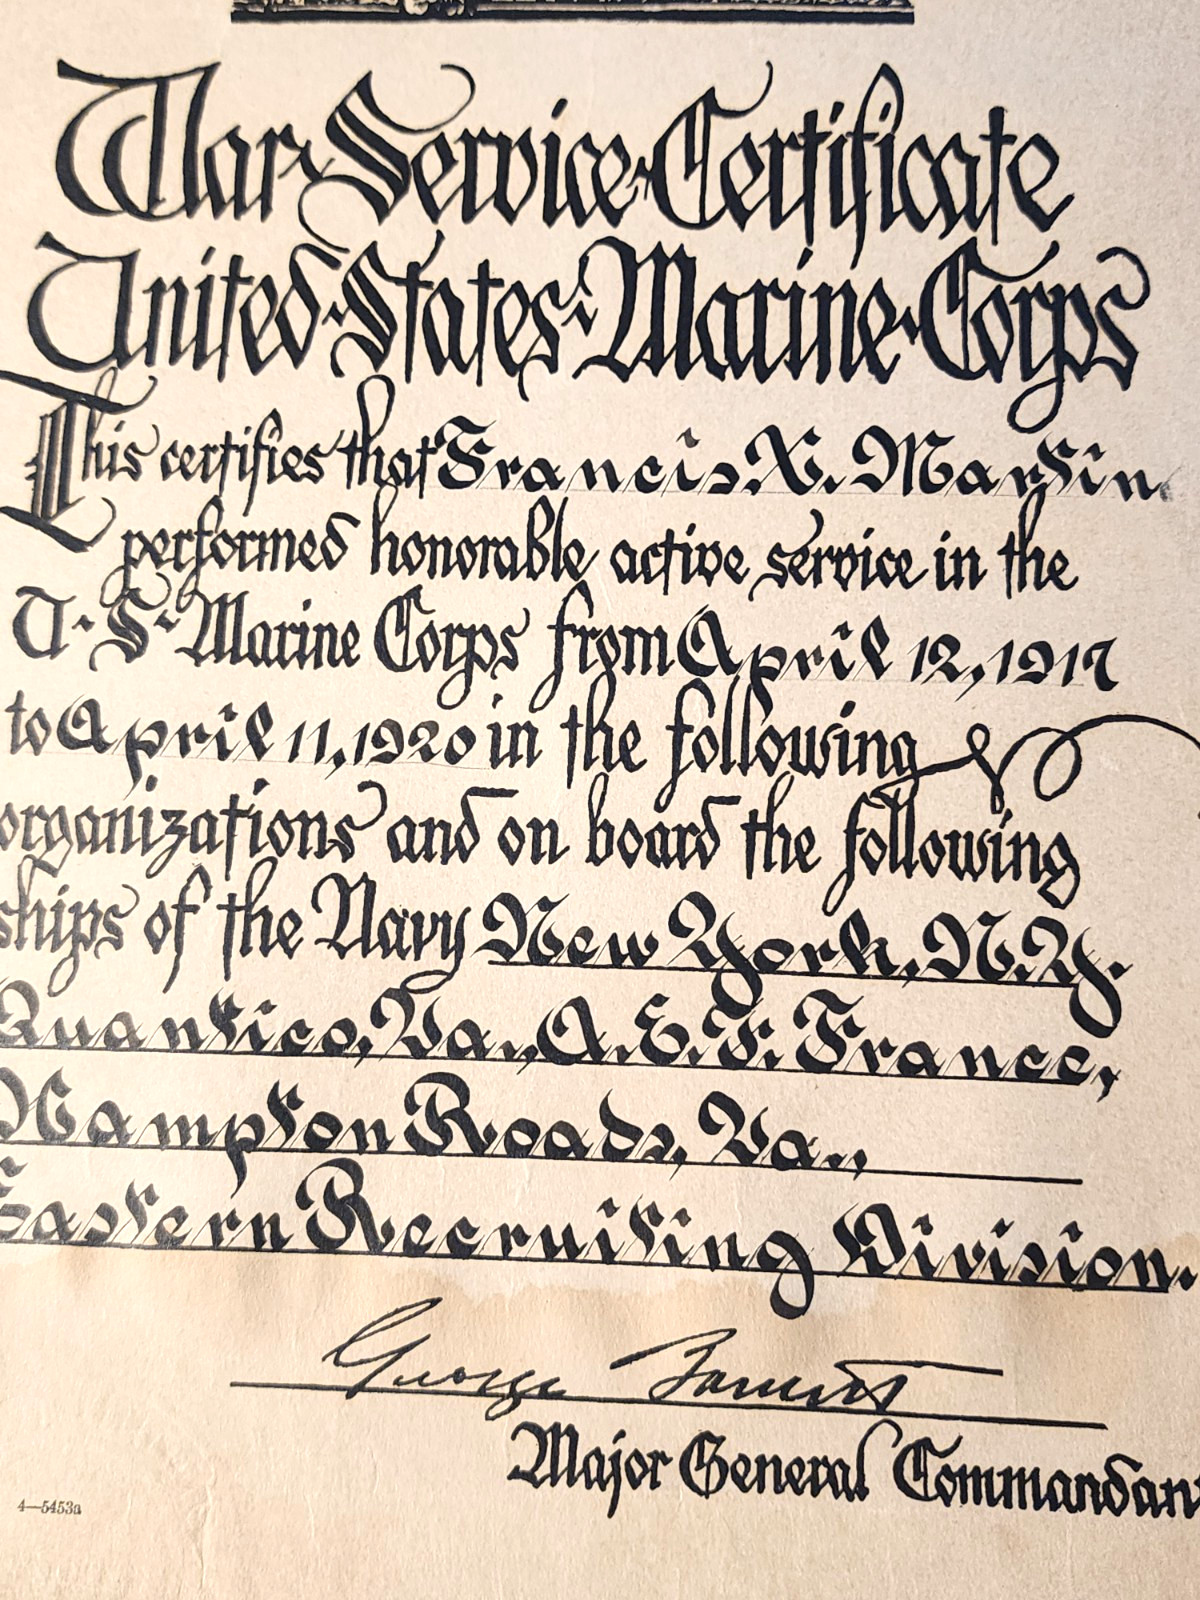 War Service Certificate
United States Marine Corps
This certifies that Francis X. Martin
performed honorable active service in the
U. S. Marine Corps from April 12, 1917
to April 11, 1920 in the following
organizations and on board the following
ships of the Navy New York, N.Y.
Quantico, Va., A.E.F. France,
Hampton Roads, Va.,
Eastern Recruiting Division.
George Barnett
Major General Commandant
4—5453a